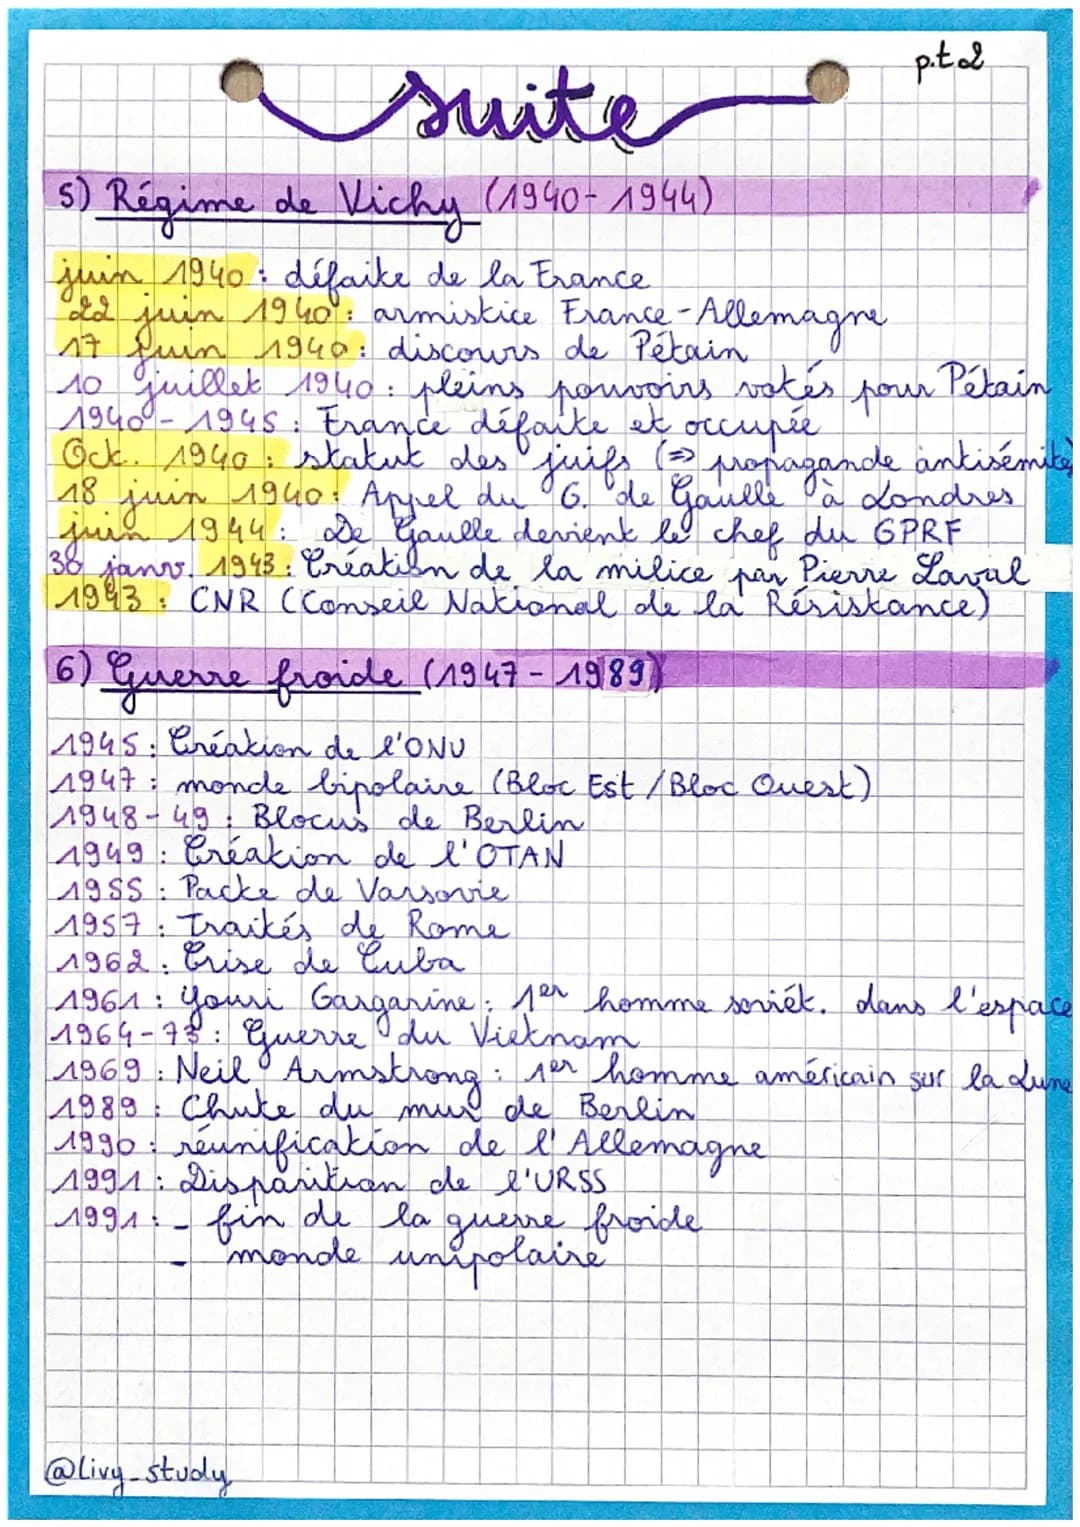 p.t.2
suite
5) Régime de Vichy (1940-1944)
juin 1940 : défaite de la France
22 juin 1940 : armistice France-Allemagne
17 juin 1940 : discours de Pétain
10 juillet 1940 : pleins pouvoirs votés pour Pétain
1940 - 1945 : France défaite et occupée
Oct. 1940 : statut des juifs (=> propagande antisémite)
18 juin 1940 : Appel du G. de Gaulle à Londres
juin 1944 : De Gaulle devient le chef du GPRF
30 janv. 1943 : Création de la milice par Pierre Laval
1943 : CNR (Conseil National de la Résistance)
6) Guerre froide (1947 - 1989)
1945 : Création de l'ONU
1947 : monde bipolaire (Bloc Est / Bloc Ouest)
1948-49 : Blocus de Berlin
1949 : Création de l'OTAN
1955 : Pacte de Varsovie
1957 : Traités de Rome
1962 : Crise de Cuba
1961 : Youri Gargarine : 1er homme soviét. dans l'espace
1964-73 : Guerre du Vietnam
1969 : Neil Armstrong : 1er homme américain sur la Lune
1989 : Chute du mur de Berlin
1990 : réunification de l'Allemagne
1991 : Disparition de l'URSS
1991 : - fin de la guerre froide
- monde unipolaire
@Livy_study